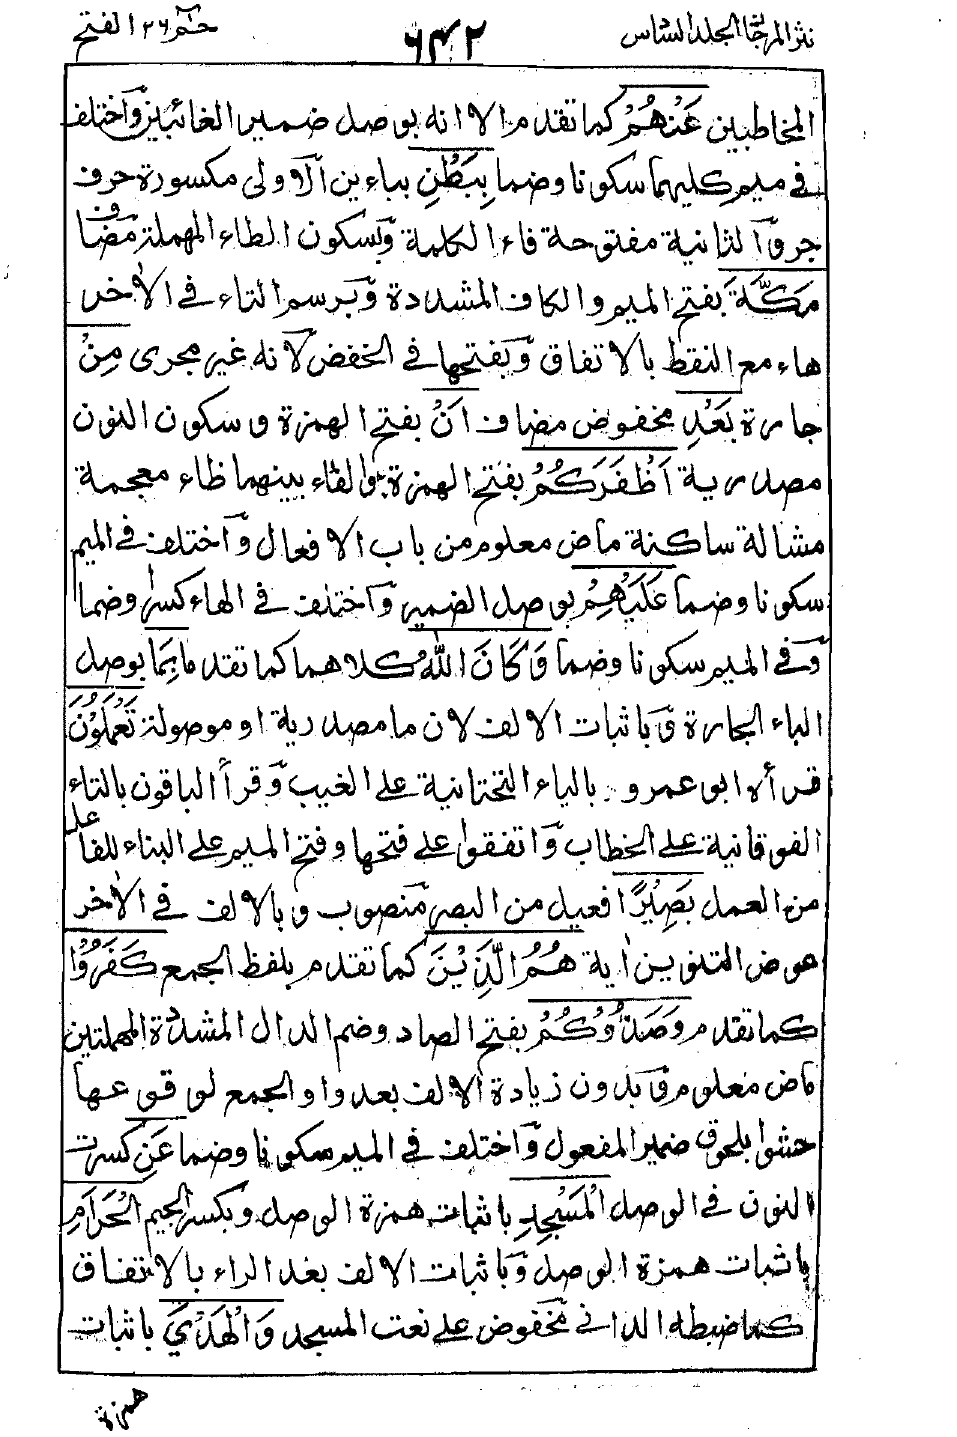 نثر المرجان المجلد السادس
٦٤٢
حٰمٓ ٢٦ الفتح
المخاطبين عَنْهُمْ كما تقدم الا انه بوصل ضمير الغائبين وَاختلف
في ميم كليهما سكونا وضما بِبَطْنِ بباءين الاولى مكسورة حرف
جر وَالثانية مفتوحة فاء الكلمة وَبسكون الطاء المهملة مضاف
مَكَّةَ بفتح الميم والكاف المشددة وَبرسم التاء في الاٰخر
هاء مع النقط بالاتفاق وَبفتحها في الخفض لانه غير مجرى مِنْ
جارة بَعْدِ مخفوض مضاف اَنْ بفتح الهمزة وسكون النون
مصدرية اَظْفَرَكُمْ بفتح الهمزة والفاء بينهما ظاء معجمة
مشالة ساكنة ماض معلوم من باب الافعال وَاختلف في الميم
سكونا وضما عَلَيْهِمْ بوصل الضمير وَاختلف في الهاء كسرا وضما
وَفي الميم سكونا وضما وَكَانَ اللّٰهُ كلاهما كما تقدما بِمَا بوصل
الباء الجارة وَباثبات الالف لان ما مصدرية او موصولة تَعْمَلُوْنَ
قرأه ابو عمرو بالياء التحتانية على الغيب وَقرأ الباقون بالتاء
الفوقانية على الخطاب وَاتفقوا على فتحها وفتح الميم على البناء للفاعل
من العمل بَصِيْرًا فعيل من البصر منصوب وبالالف في الاٰخر
عوض التنوين اٰية هُمُ الَّذِيْنَ كما تقدم بلفظ الجمع كَفَرُوْا
كما تقدم وَصَدُّوْكُمْ بفتح الصاد وضم الدال المشددة المهملتين
ماض معلوم وَبدون زيادة الالف بعد واو الجمع لوقوعها
حشوا بلحوق ضمير المفعول وَاختلف في الميم سكونا وضما عَنِ كسرت
النون في الوصل الْمَسْجِدِ باثبات همزة الوصل وبكسر الجيم الْحَرَامِ
باثبات همزة الوصل وَباثبات الالف بعد الراء بالاتفاق
كما ضبطه الداني مخفوض على نعت المسجد وَالْهَدْيَ باثبات
همزة